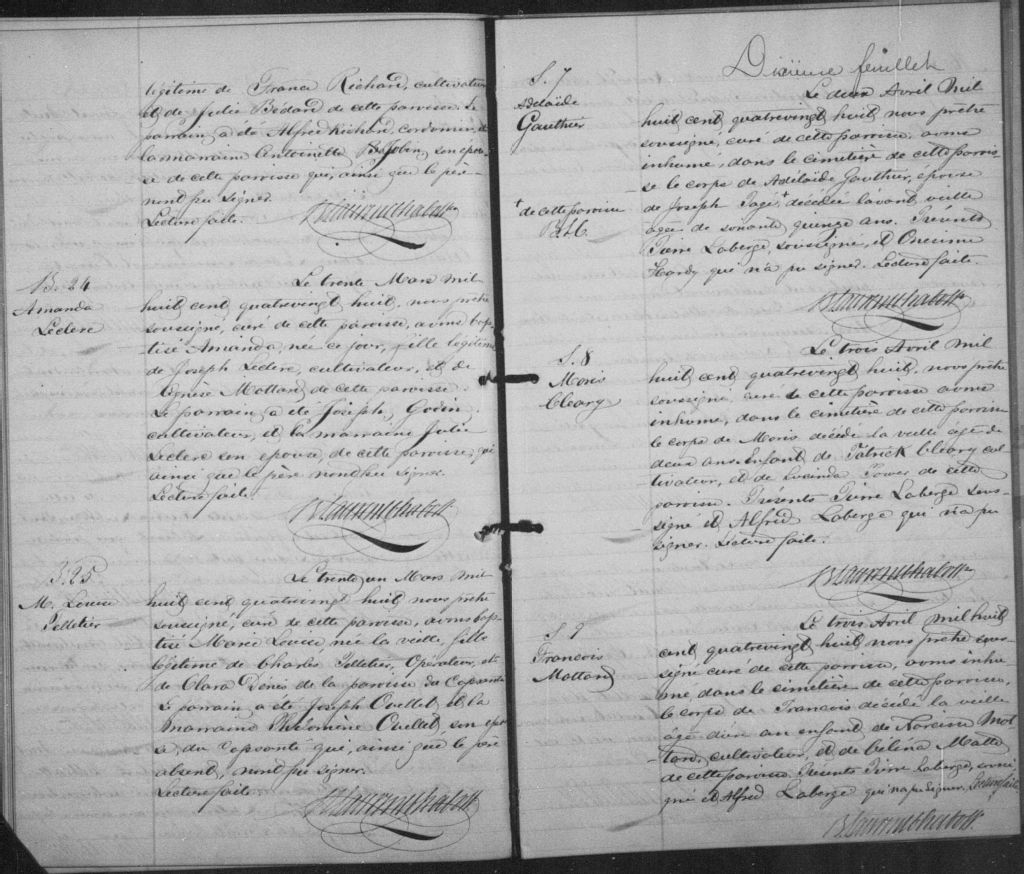 légitime de France Richard, cultivateur
et de Julie Bédard de cette paroisse. Le
parrain a été Alfred Richard, cordonnier, et
la marraine Antoinette son epou-
se de cette paroisse qui, ainsi que le père
n'ont pu signer.
Lecture faite.
B. 24
Amanda
Leclerc
Le trente Mars mil
huit cent quatrevingt huit, nous prêtre
soussigné, curé de cette paroisse, avons bap-
tisé Amanda, née ce jour, fille légitime
de Joseph Leclerc, cultivateur, et de
Agnèse Mottard de cette paroisse.
Le parrain a été Joseph Godin,
cultivateur, et la marraine Julie
Leclerc son epouse, de cette paroisse, qui
ainsi que le père n'ont pu signer.
Lecture faite.
B. 25
M. Louise
Pelletier
Le trente un Mars mil
huit cent quatrevingt huit nous prêtre
soussigné, curé de cette paroisse, avons bap-
tisé Marie Louise née la veille, fille
légitime de Charles Pelletier, Opérateur, et
de Clara Dénis de la paroisse du Capsanté
Le parrain a été Joseph Ouellet et la
marraine Philomène Ouellet, son epou-
se, du Capsanté qui, ainsi que le père
absent, n'ont pu signer.
Lecture faite.
Dixième feuillet
S. 7
Adelaïde
Gauthier
+ de cette paroisse
Le deux Avril mil
huit cent quatrevingt huit, nous prêtre
soussigné, curé de cette paroisse, avons
inhumé, dans le cimetière de cette parois-
se le corps de Adélaïde Gauthier, epouse
de Joseph Pagé + décédée l'avant veille
agée de soixante quinze ans. Présents
Pierre Laberge, soussigné, et Onesime
Hardy qui n'a pu signer. Lecture faite.
S. 8
Moris
Cleary
Le trois Avril mil
huit cent quatrevingt huit, nous prêtre
soussigné, curé de cette paroisse avons
inhumé, dans le cimetière de cette paroisse
le corps de Moris décédé la veille agé de
deux ans enfant de Patrick Cleary cul-
tivateur, et de Lucinda Power de cette
paroisse. Présents Pierre Laberge sous-
signé et Alfred Laberge qui n'a pu
signer. Lecture faite.
S 9
Francois
Mottard
Le trois Avril mil huit
cent quatrevingt huit, nous prêtre sous-
signé curé de cette paroisse, avons inhu-
mé dans le cimetière de cette paroisse,
le corps de Francois décédé la veille
âgé d'un an enfant de Narcisse Mot-
tard, cultivateur, et de Célina Matte
de cette paroisse. Présents Pierre Laberge, sous-
gné et Alfred Laberge qui n'a pu signer. Lecture faite